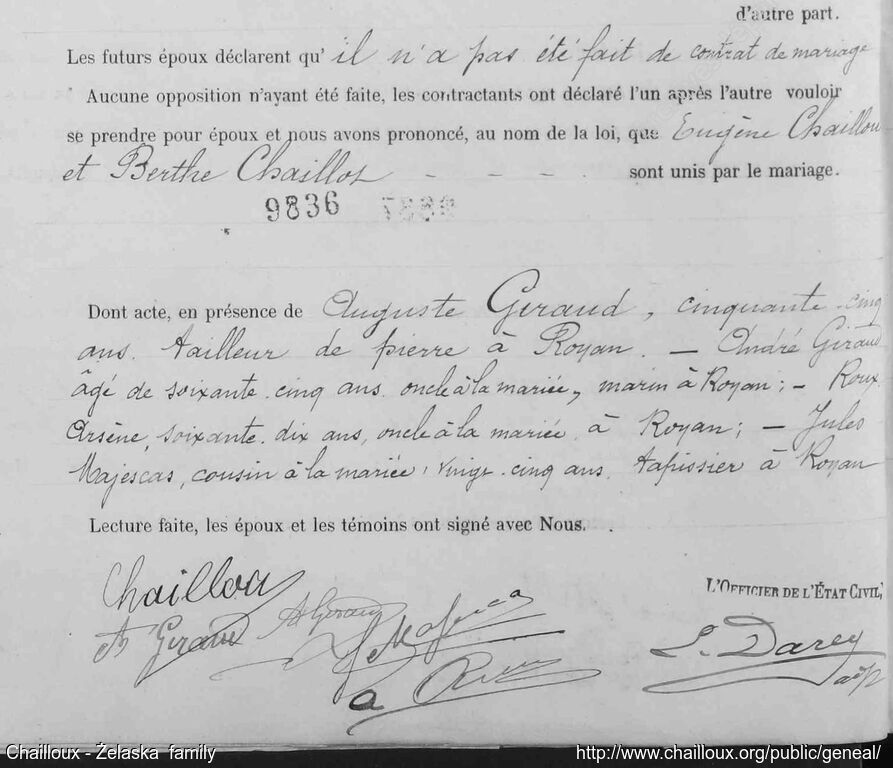 d'autre part.
Les futurs époux déclarent qu' il n'a pas été fait de contrat de mariage
Aucune opposition n'ayant été faite, les contractants ont déclaré l'un après l'autre vouloir
se prendre pour époux et nous avons prononcé, au nom de la loi, que Eugène Chaillou
et Berthe Chaillot - - - . sont unis par le mariage.
9836
Dont acte, en présence de Auguste Geraud, cinquante-cinq
ans. tailleur de pierre à Royan. — André Giraud
âgé de soixante cinq ans. oncle à la mariée, marin à Royan; — Roux
Arsène, soixante-dix ans, oncle à la mariée, à Royan; — Jules
Majescas, cousin à la mariée, vingt-cinq ans. tapissier à Royan
Lecture faite, les époux et les témoins ont signé avec Nous.
L'OFFICIER DE L'ÉTAT CIVIL,
Chaillou
Geraud
Darcy
Chailloux - Želaska family
http://www.chailloux.org/public/geneal/